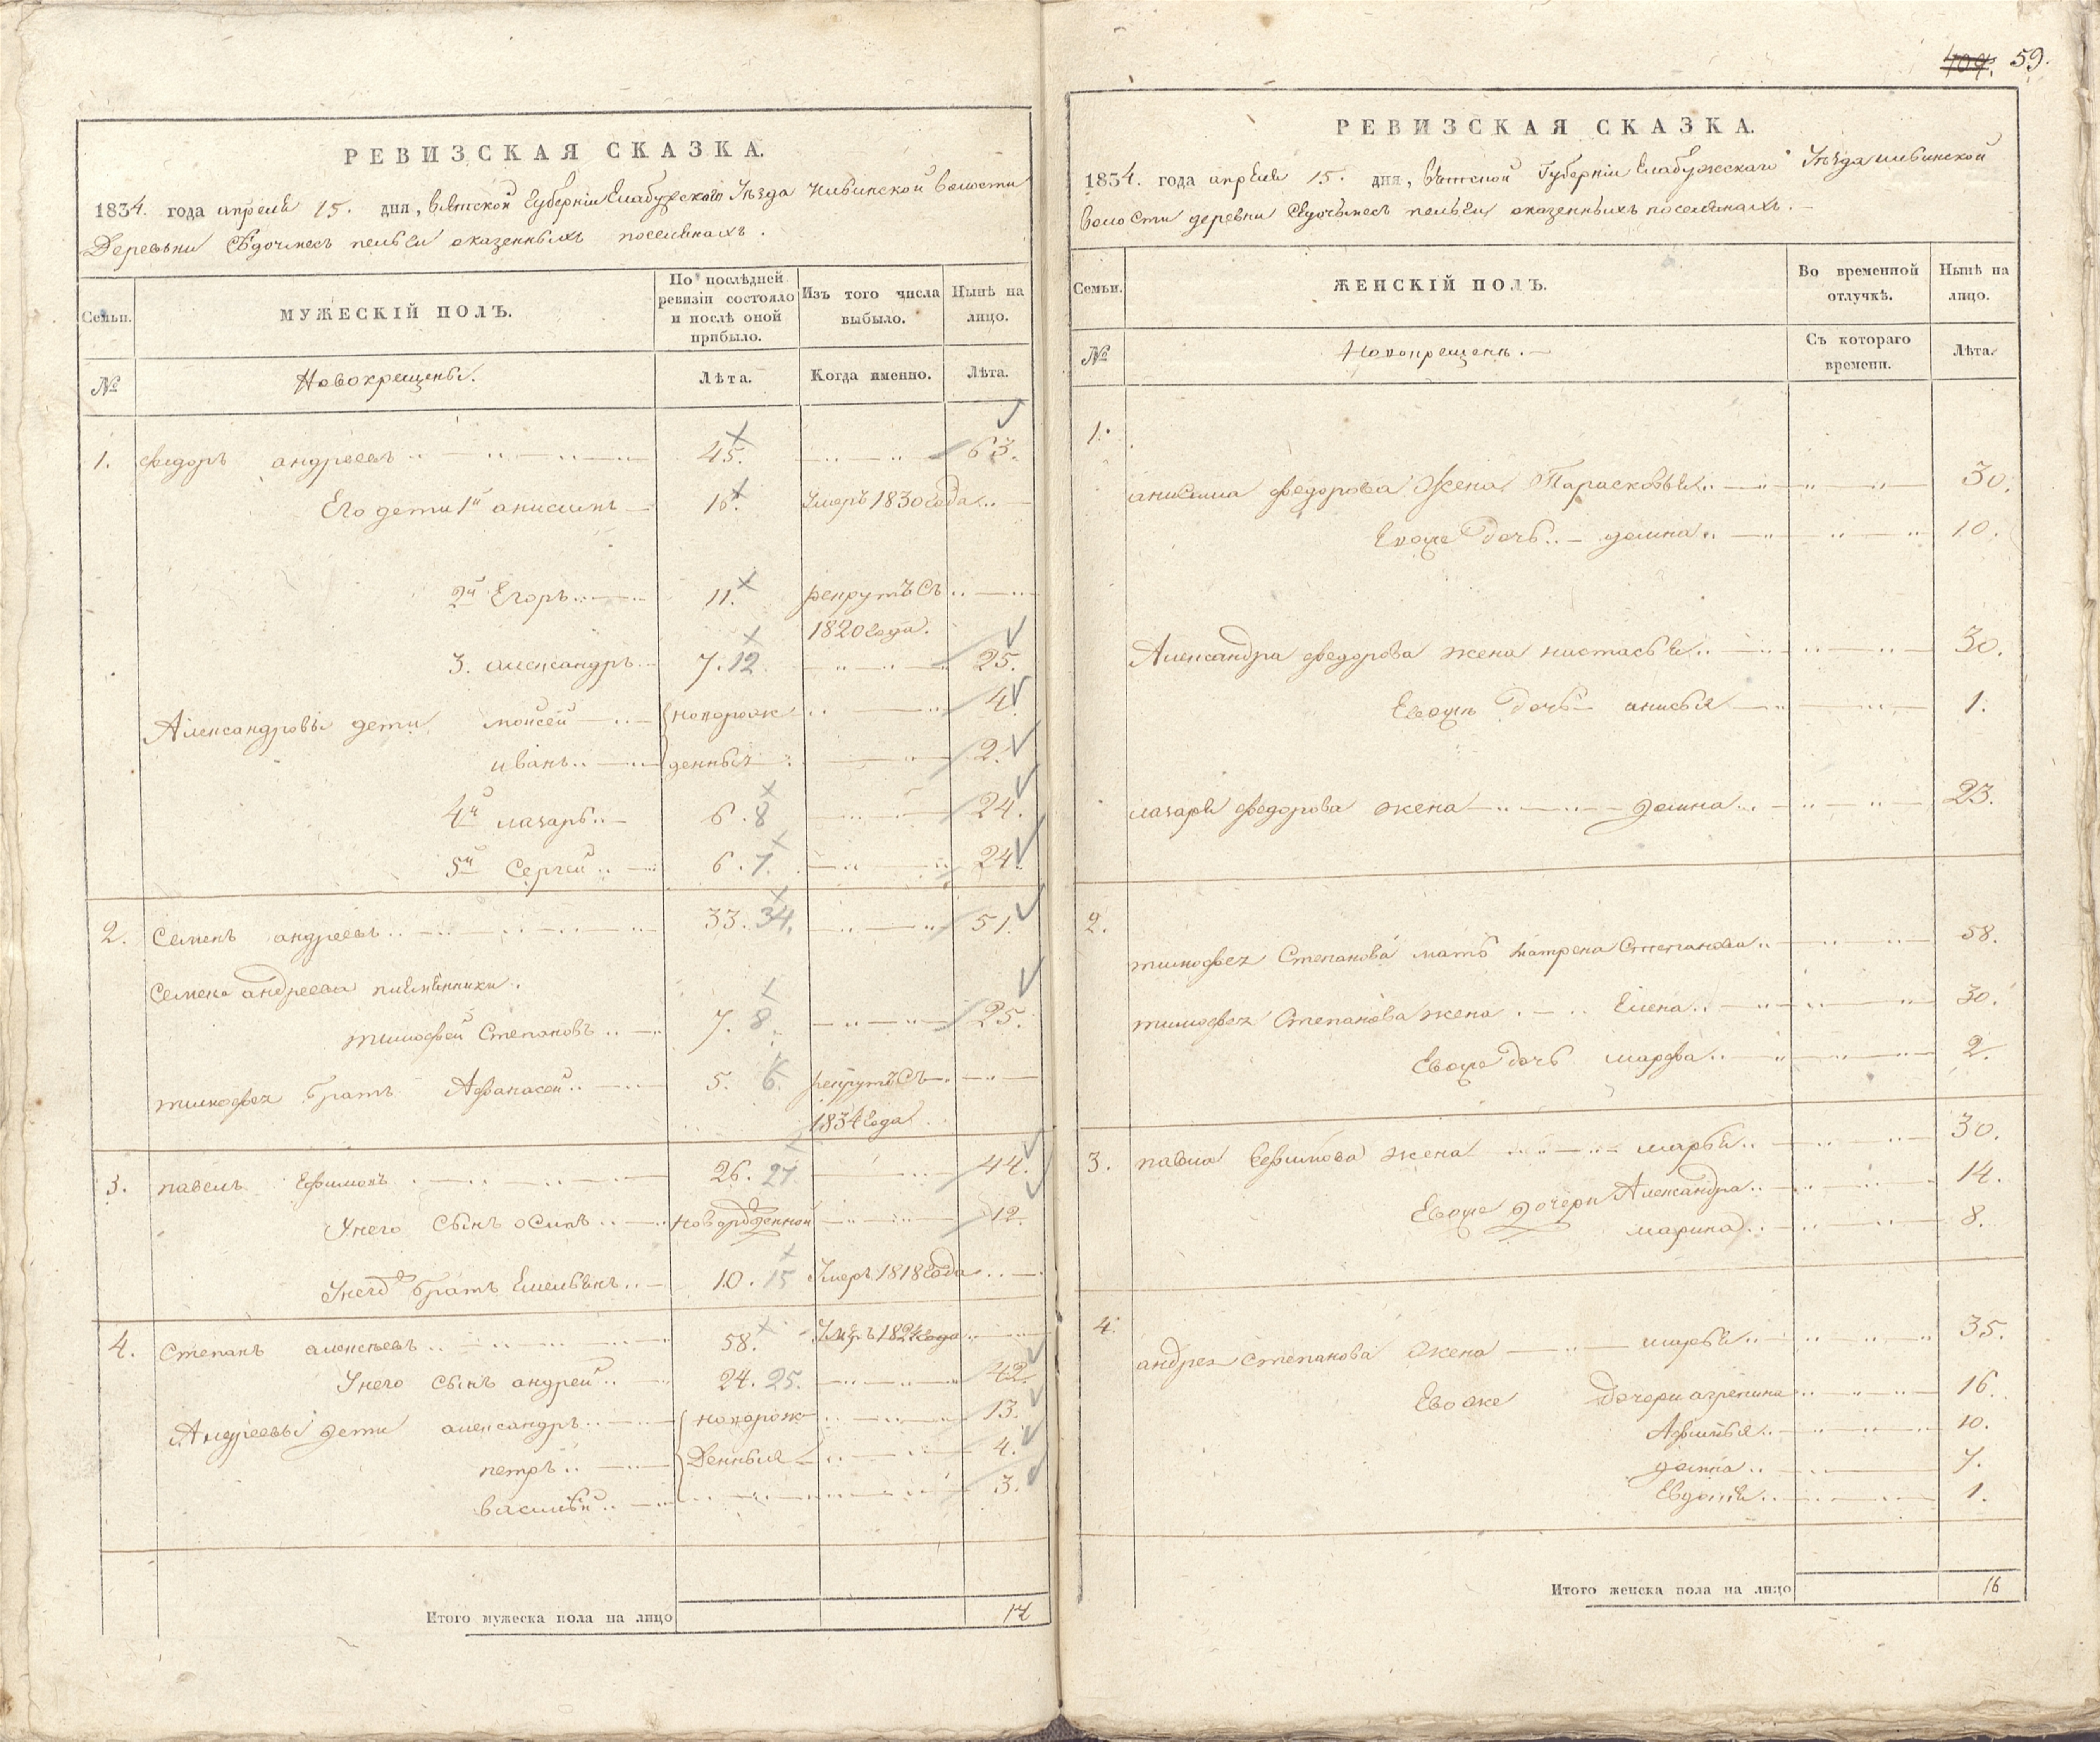 РЕВИЗСКАЯ СКАЗКА.
1834. года апреля 15. дня, вятской Губерніи Елабужскаго Уезда
Деревни пельги оказенныхъ поселянахъ.
Семьи.
МУЖЕСКІЙ ПОЛЪ.
По послѣдней ревизіи состояло и послѣ оной прибыло.
Изъ того числа выбыло.
Нынѣ на лицо.
№
Новокрещены.
Лѣта.
Когда именно.
Лѣта.
1. федоръ андреевъ 45. 63.
Его дети 1й анисимъ 16. Умеръ 1830 года
2й Егоръ 11. рекрутъ съ
1820 года.
3. александръ 7. 12. 25.
Александровы дети моисей новорож 4
иванъ денныя 2.
4й лазарь 6. 8 24.
5й Сергей 6. 7. 24.
2. Семенъ андреевъ 33. 34. 51.
Семена андреева племянники.
тимофей Степановъ 7. 8. 25.
тимофея братъ Афанасей 5. 6. рекрутъ съ
1834 года
3. павелъ Ефимовъ 26. 27. 44.
Унего сынъ осипъ новорожденной 12.
Унегожъ братъ Емельянъ 10. 15 Умеръ 1818 года
4. Степанъ алексеевъ 58. Умеръ 1824 года
Унего сынъ андрей 24. 25. 42.
Андреевы дети александръ новорож 13.
петръ денныя 4.
василий 3.
Итого мужеска пола на лицо 14
109. 59.
РЕВИЗСКАЯ СКАЗКА.
1834. года апреля 15. дня, вятской Губерніи Елабужскаго Уезда
волости деревни пельги оказенныхъ поселянахъ.
Семьи.
ЖЕНСКІЙ ПОЛЪ.
Во временной отлучкѣ.
Нынѣ на лицо.
№
Новокрещены.
Съ котораго времени.
Лѣта.
1.
анисима федорова жена Парасковья 30.
Евоже дочь домна 10.
Александра федорова жена настасья 30.
Евожъ дочь анисья 1.
лазаря федорова жена домна 23.
2.
тимофея Степанова мать матрена Степанова 58.
тимофея Степанова жена Елена 30.
Евоже дочь марфа 2.
3. павла Ефимова жена марья 30.
Евоже дочери Александра 14.
марина 8.
4.
андрея степанова жена марья 35.
Евоже дочери агрепина 16.
Афимья 10.
домна 7.
Евдокия 1.
Итого женска пола на лицо 16